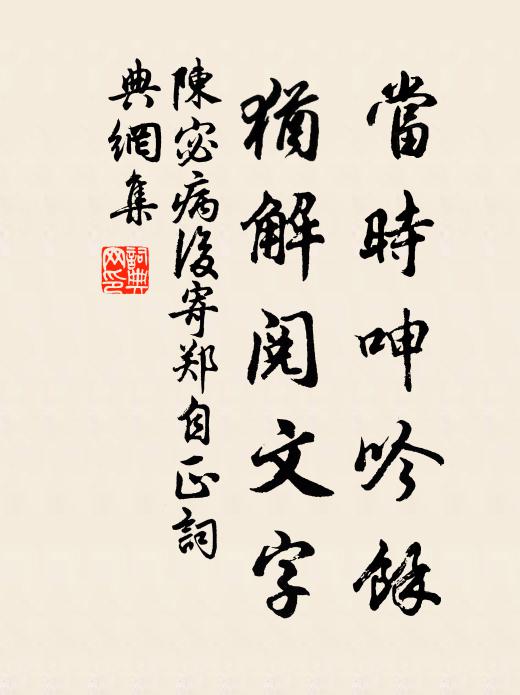 當時呻吟餘
猶解閱文字
陳宓病後寄郑自正詞
典網集
詞典網印